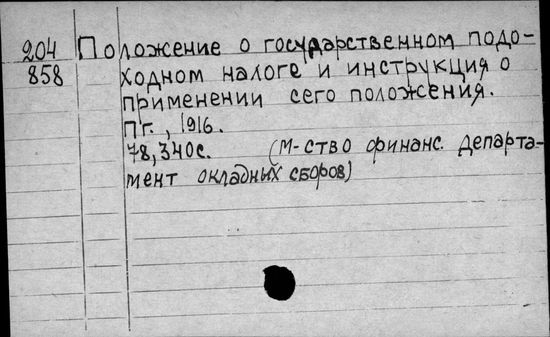 204 Положение о государственном подо-
858 ходном налоге и инструкция о
применении сего положения.
Пг., 1916.
78, 340с. (М-ство финанс. Департа-
мент окладных сборов)